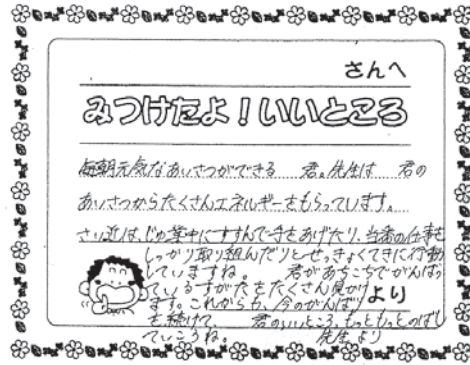 さんへ
みつけたよ！いいところ
毎朝元気なあいさつができる　　君。先生は　　君の
あいさつからたくさんエネルギーをもらっています。
さい近は、じゅ業中にすすんで手をあげたり、当番の仕事を
しっかり取り組んだりとせっきょくてきに行動
していますね。　　君があちこちでがんばっ
ているすがたをたくさん見かけ
ます。これからも、今のがんばり
より
を続けて、　　君のいいところ、もっともっとのばし
ていこうね。　　先生より